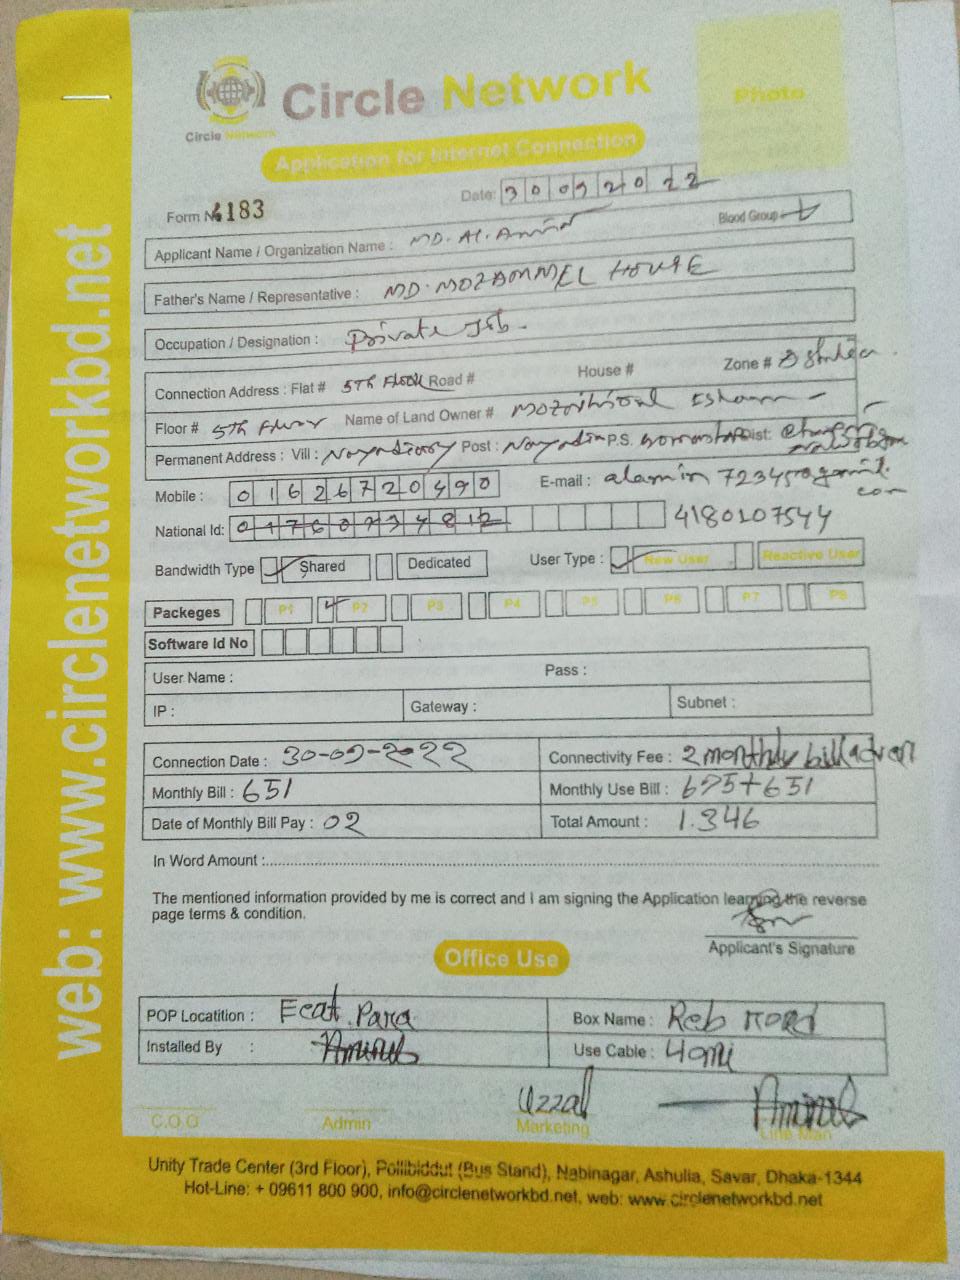 Circle Network
Circle Network
Photo
Application for Internet Connection
Date: 30 09 2022
Form No 4183
Applicant Name / Organization Name : MD. Al. Amin
Blood Group
Father's Name / Representative : MD. MOZAMMEL HOUSE
Occupation / Designation : Private Job.
Connection Address : Flat # 5TH Floor Road # House # Zone #
Floor # 5th Floor Name of Land Owner #
Permanent Address : Vill : Post : P.S. Dist:
Mobile : 01626720490 E-mail :
National Id: 4180107544
Bandwidth Type Shared Dedicated User Type : New User Reactive User
Packeges P1 P2 P3 P4 P5 P6 P7 P8
Software Id No
User Name : Pass :
IP : Gateway : Subnet :
Connection Date : 30-09-2022 Connectivity Fee : 2 monthly bill advan
Monthly Bill : 651 Monthly Use Bill : 695+651
Date of Monthly Bill Pay : 02 Total Amount : 1.346
In Word Amount :
The mentioned information provided by me is correct and I am signing the Application learning the reverse
page terms & condition.
Applicant's Signature
Office Use
POP Locatition : Para Box Name : Reb
Installed By : Aminul Use Cable :
Uzzal Aminul
C.O.O Admin Marketing Line Man
Unity Trade Center (3rd Floor), Pollibiddut (Bus Stand), Nabinagar, Ashulia, Savar, Dhaka-1344
Hot-Line: + 09611 800 900, info@circlenetworkbd.net, web: www.circlenetworkbd.net
web: www.circlenetworkbd.net